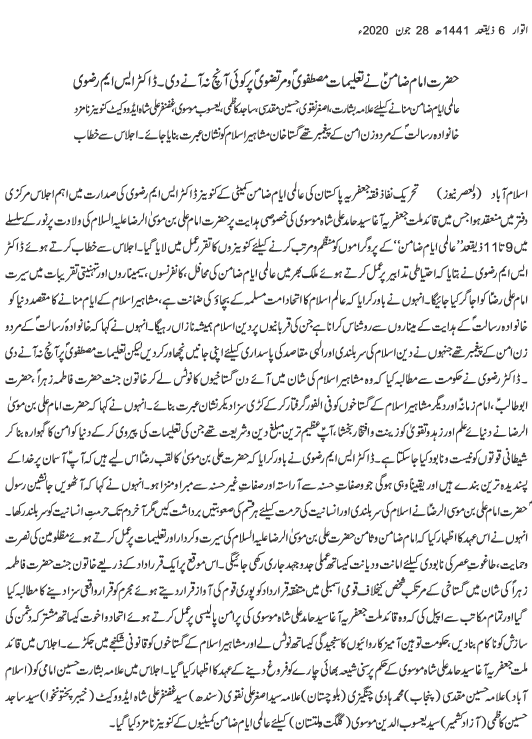 اتوار 6 ذیقعد 1441ھ 28 جون 2020ء
حضرت امام ضامنؑ نے تعلیمات مصطفویؐ و مرتضویؑ پر کوئی آنچ نہ آنے دی۔ ڈاکٹر ایس ایم رضوی
عالمی ایام ضامن منانے کیلئے علامہ بشارت، اصغر نقوی، حسین مقدسی، ساجد کاظمی، یعسوب موسوی، غضنفر علی شاہ ایڈووکیٹ کنوینئرز نامزد
خانوادہ رسالتؐ کے مرد و زن امن کے پیغمبر تھے گستاخان مشاہیر اسلام کو نشان عبرت بنایا جائے۔ اجلاس سے خطاب
اسلام آباد (ولعصر نیوز) تحریک نفاذ فقہ جعفریہ پاکستان کی عالمی ایام ضامن کمیٹی کے کنوینر ڈاکٹر ایس ایم رضوی کی صدارت میں اہم اجلاس مرکزی
دفتر میں منعقد ہوا جس میں قائد ملت جعفریہ آغا سید حامد علی شاہ موسوی کی خصوصی ہدایت پر حضرت امام علی بن موسیٰ الرضا علیہ السلام کی ولادت پر نور کے سلسلے
میں 9 تا 11 ذیقعد ’’عالمی ایام ضامن‘‘ کے پروگراموں کو منظم و مرتب کرنے کیلئے کنوینرز کا تقرر عمل میں لایا گیا۔ اجلاس سے خطاب کرتے ہوئے ڈاکٹر
ایس ایم رضوی نے بتایا کہ احتیاطی تدابیر پر عمل کرتے ہوئے ملک بھر میں عالمی ایام ضامن کی محافل، کانفرنسوں، سیمیناروں اور تہنیتی تقاریب میں سیرت
امام علی رضاؑ کو اجاگر کیا جائیگا۔ انہوں نے باور کرایا کہ عالم اسلام کا اتحاد امت مسلمہ کے بچاؤ کی ضمانت ہے، مشاہیر اسلام کے ایام منانے کا مقصد دنیا کو
خانوادہ رسالتؐ کے ہدایت کے میناروں سے روشناس کرانا ہے جن کی قربانیوں پر دین اسلام ہمیشہ نازاں رہیگا۔ انہوں نے کہا کہ خانوادہ رسالتؐ کے مرد و
زن امن کے پیغمبر تھے جنہوں نے دین اسلام کی سربلندی اور الہی مقاصد کی پاسداری کیلئے اپنی جانیں نچھاور کر دیں لیکن تعلیمات مصطفویؐ پر آنچ نہ آنے دی
۔ ڈاکٹر رضوی نے حکومت سے مطالبہ کیا کہ وہ مشاہیر اسلام کی شان میں آئے دن گستاخیوں کا نوٹس لے کر خاتون جنت حضرت فاطمہ زہراؑ، حضرت
ابوطالبؑ، امام زمانہؑ اور دیگر مشاہیر اسلام کے گستاخوں کو فی الفور گرفتار کر کے کڑی سزا دیکر نشان عبرت بنائے۔ انہوں نے کہا کہ حضرت امام علی بن موسیٰ
الرضاؑ نے دنیائے علم اور زہد و تقویٰ کو زینت و افتخار بخشا، آپؑ عظیم ترین مبلغ دین و شریعت تھے جن کی تعلیمات کی پیروی کر کے دنیا کو امن کا گہوارہ بنا کر
شیطانی قوتوں کو نیست و نابود کیا جا سکتا ہے۔ ڈاکٹر ایس ایم رضوی نے باور کرایا کہ حضرت علی بن موسیٰؑ کا لقب رضا اس لیے ہے کہ آپؑ آسمان پر خدا کے
پسندیدہ ترین بندے ہیں اور یقیناً وہی ہو گی جو صفات حسنہ سے آراستہ اور صفات غیر حسنہ سے مبرا و منزا ہو۔ انہوں نے کہا کہ آٹھویں جانشین رسولؐ
حضرت امام علی بن موسیٰ الرضاؑ نے اسلام کی سربلندی اور انسانیت کی حرمت کیلئے ہر قسم کی صعوبتیں برداشت کیں مگر آخر دم تک حرمت انسانیت کو سربلند رکھا۔
انہوں نے اس عہد کا اظہار کیا کہ امام ضامن و ثامن حضرت علی بن موسیٰ الرضا علیہ السلام کی سیرت و کردار اور تعلیمات پر عمل کرتے ہوئے مظلومین کی نصرت
و حمایت، طاغوت عصر کی نابودی کیلئے امانت و دیانت کیساتھ عملی جدوجہد جاری رکھی جائیگی۔ اس موقع پر ایک قرارداد کے ذریعے خاتون جنت حضرت فاطمہ
زہراؑ کی شان میں گستاخی کے مرتکب شخص کیخلاف قومی اسمبلی میں متفقہ قرارداد کو پوری قوم کی آواز قرار دیتے ہوئے مجرم کو قرار واقعی سزا دینے کا مطالبہ کیا
گیا اور تمام مکاتب سے اپیل کی کہ وہ قائد ملت جعفریہ آغا سید حامد علی شاہ موسوی کی پر امن پالیسی پر عمل کرتے ہوئے اتحاد و اخوت کیساتھ مشترکہ دشمن کی
سازش کو ناکام بنا دیں، حکومت توہین آمیز کاروائیوں کا سنجیدگی کیساتھ نوٹس لے اور مشاہیر اسلام کے گستاخوں کو قانونی شکنجے میں جکڑے۔ اجلاس میں قائد
ملت جعفریہ آغا سید حامد علی شاہ موسوی کے حکم پر سنی شیعہ بھائی چارے کو فروغ دینے کے عہد کا اظہار کیا گیا۔ اجلاس میں علامہ بشارت حسین امامی کو (اسلام
آباد) علامہ حسین مقدسی (پنجاب) محمد ہادی چنگیزی (بلوچستان) علامہ سید اصغر علی نقوی (سندھ) سید غضنفر علی شاہ ایڈووکیٹ (خیبر پختونخوا) سید ساجد
حسین کاظمی (آزاد کشمیر) سید یعسوب الدین موسوی (گلگت و بلتستان) کیلئے عالمی ایام ضامن کمیٹیوں کے کنوینر نامزد کیا گیا۔